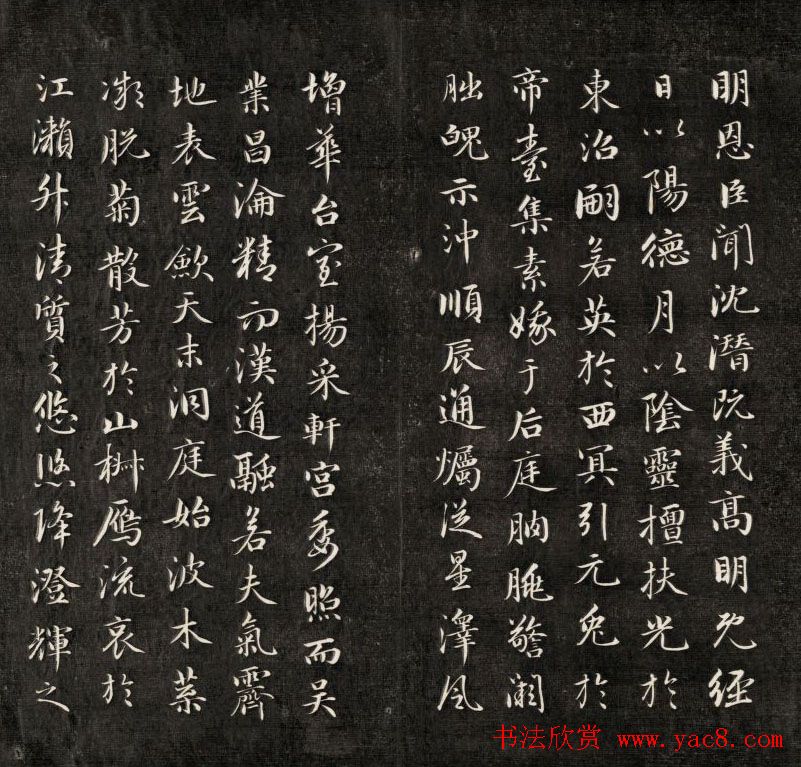 明恩臣聞沈潛既義高明既經
日以陽德月以陰靈擅扶光於
東沼嗣若英於西冥引元兔於
帝臺集素娥于后庭朒朓警闕
朏魄示沖順辰通爥從星澤風
增華台室揚采軒宮委照而吳
業昌淪精而漢道融若夫氣霽
地表雲歛天末洞庭始波木葉
微脫菊散芳於山椒鴈流哀於
江瀨升清質之悠悠降澄輝之
书法欣赏 www.yac8.com